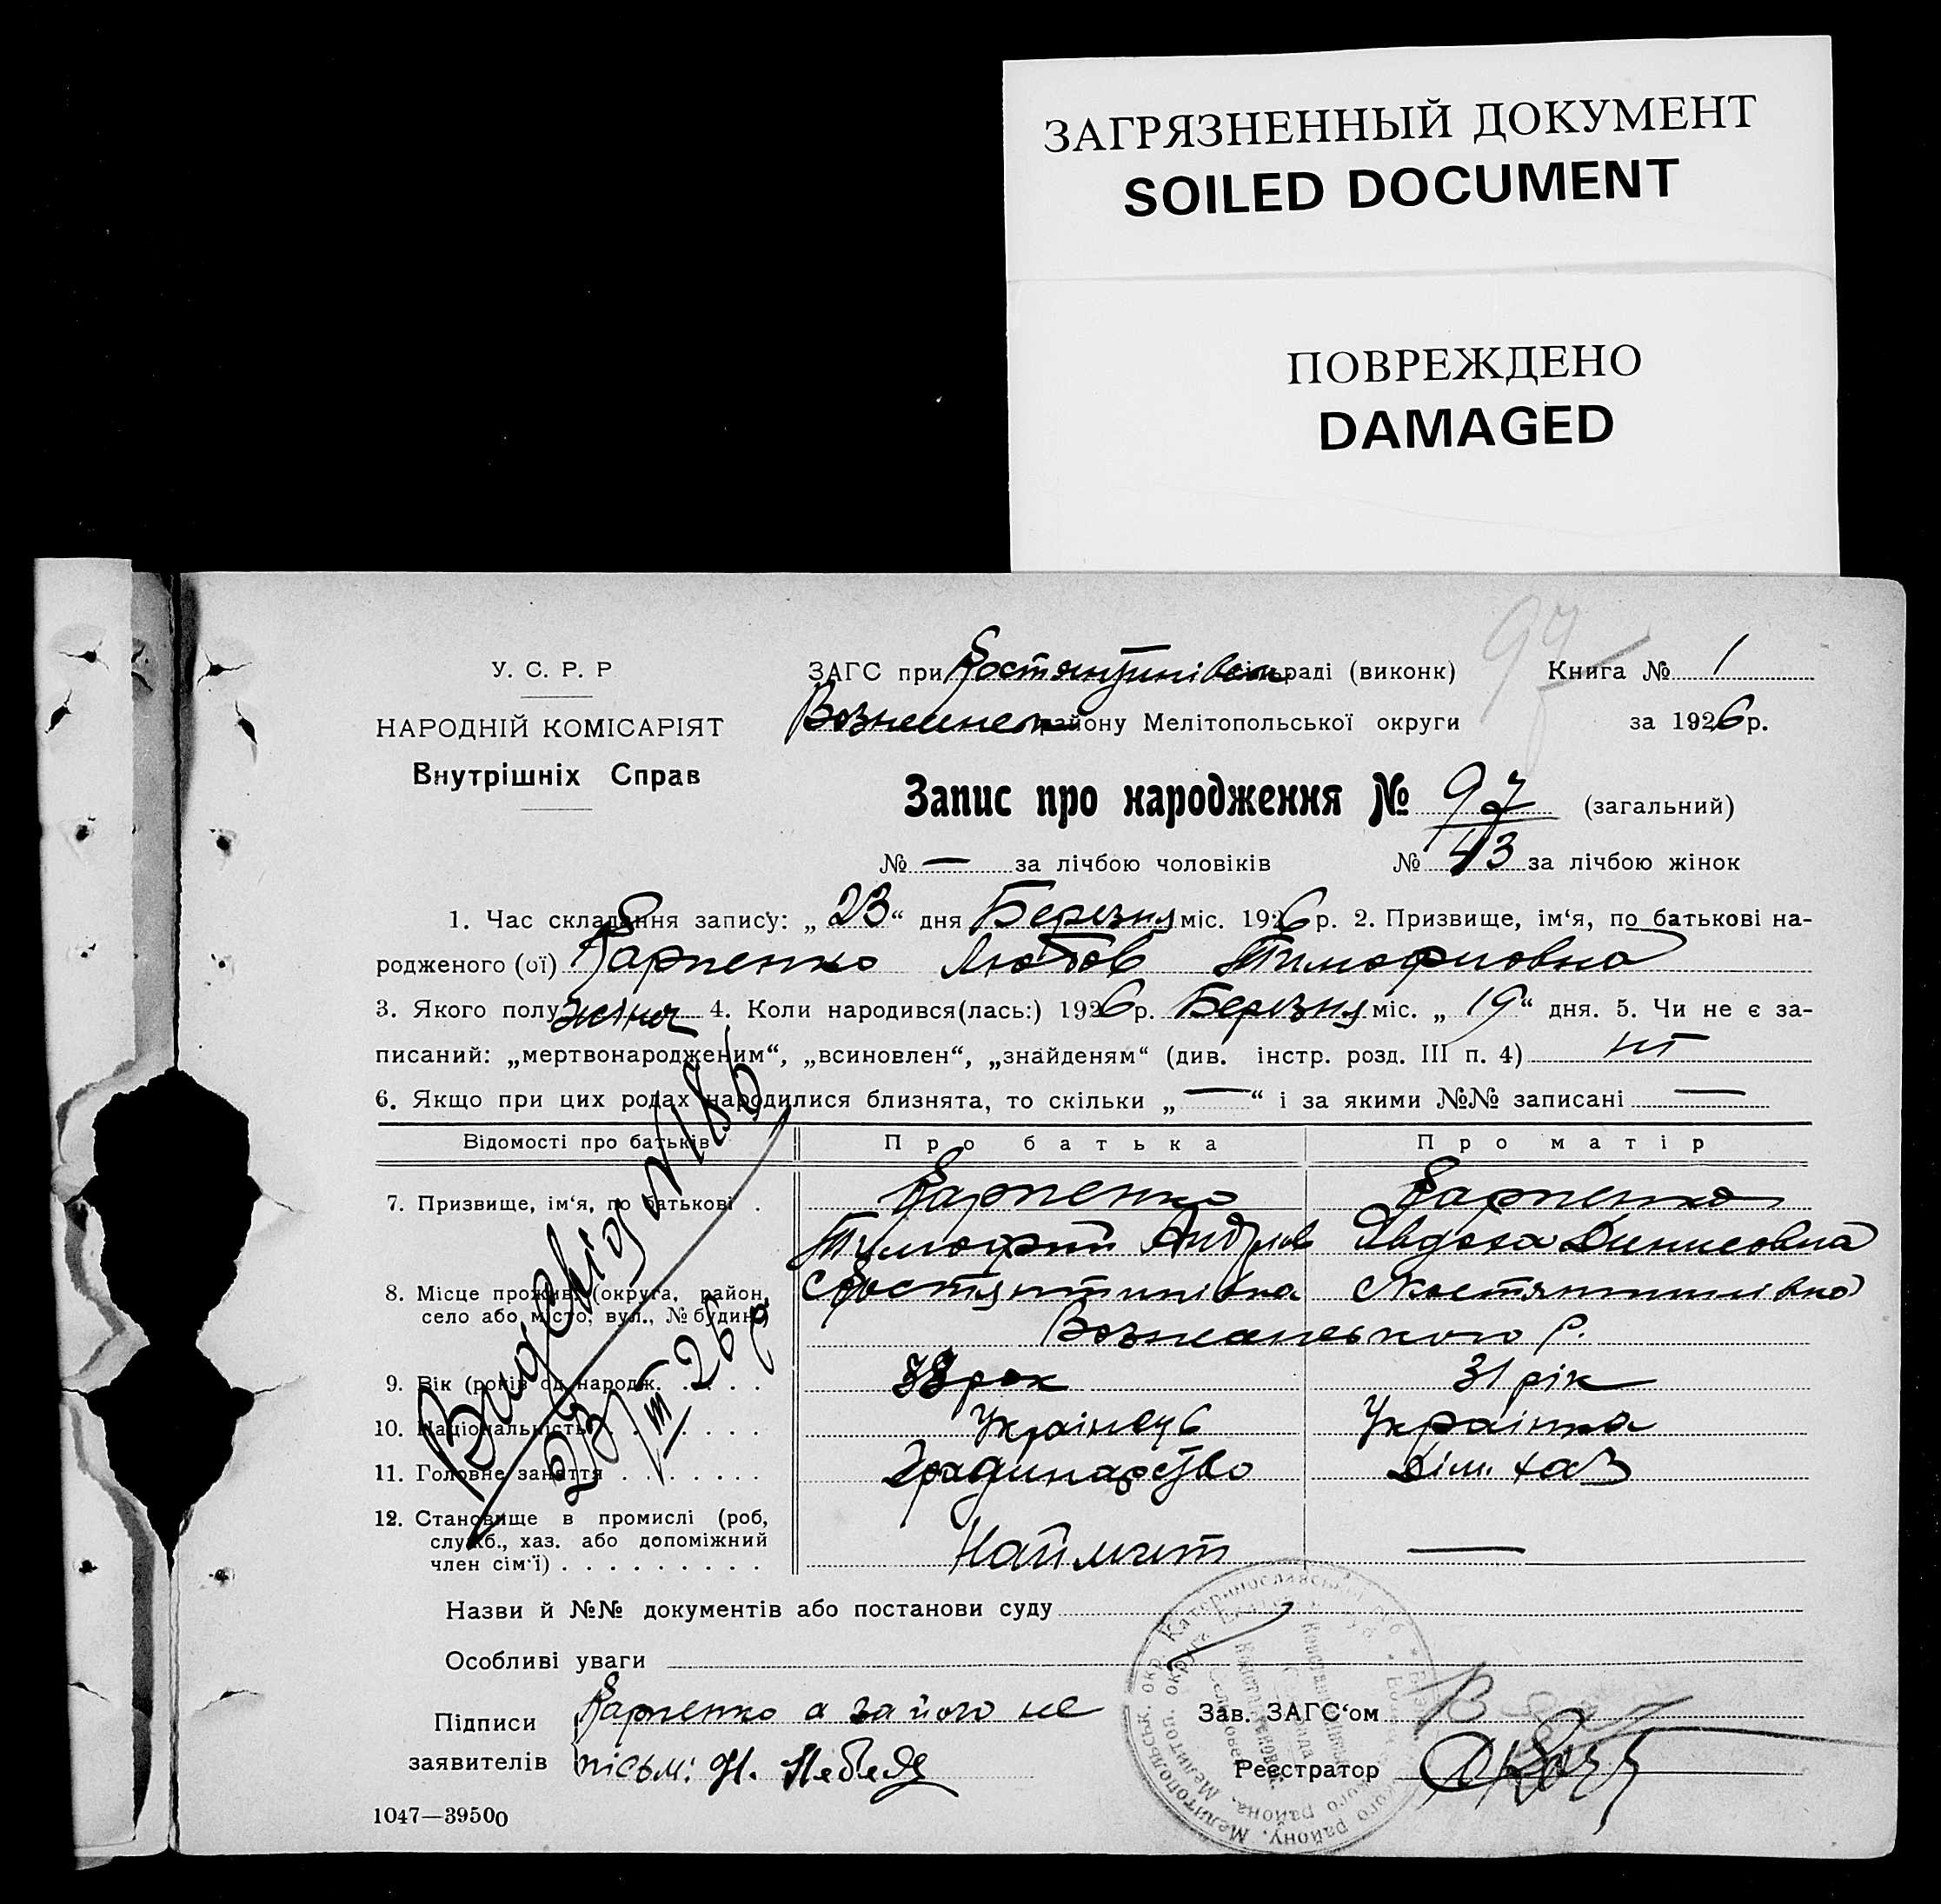 ЗАГРЯЗНЕННЫЙ ДОКУМЕНТ
SOILED DOCUMENT
ПОВРЕЖДЕНО
DAMAGED
97
У. С. Р. Р
НАРОДНІЙ КОМІСАРІЯТ
Внутрішніх Справ
ЗАГС при Костянтинівськ раді (виконк)
Книга № 1
району Мелітопольської округи
за 1926 р.
Запис про народження № 97 (загальний)
№ — за лічбою чоловіків № 43 за лічбою жінок
1. Час складання запису: „23“ дня Березня міс. 1926 р. 2. Призвище, ім‘я, по батькові на-
родженого (ої) Карпенко Любов Тимофиовна
3. Якого полу жіноч 4. Коли народився(лась:) 1926 р. Березня міс. „19“ дня. 5. Чи не є за-
писаний: „мертвонародженим“, „всиновлен“, „знайденям“ (див. інстр. розд. III п. 4) ні
6. Якщо при цих родах народилися близнята, то скільки „—“ і за якими №№ записані —
Відомості про батьків Про батька Про матір
7. Призвище, ім‘я, по батькові . Карпенко Карпенко
Тимофій Андріїв Явдоха Денисовна
8. Місце прожив. (округа, район, село або місто, вул., № будин.) с Костянтинівка с Костянтинівка
р.
9. Вік (років од народж. . . . . 38 рок 31 рік
10. Національність . . . . . . Українець Українка
11. Головне заняття . . . . . . . Градинарство Дім. хаз
12. Становище в промислі (роб,
служб., хаз. або допоміжний
член сім‘ї) . . . . . . . . . Наймит —
Видавід № 186
23/III 26 р
Назви й №№ документів або постанови суду
Особливі уваги
Підписи заявителів Карпенко а за його не
письм: Н. Лебедь
Зав. ЗАГС‘ом
Реєстратор
1047—39500